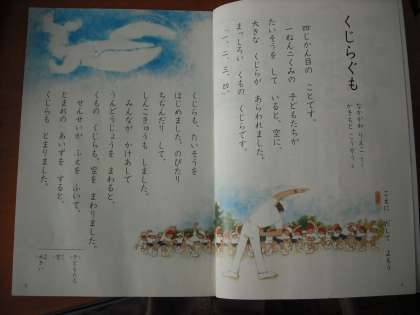 くじらぐも
なかがわ りえこ さく
かきもと こうぞう え
こえに だして よもう
四じかん目の ことです。
一ねん二くみの 子どもたちが
たいそうを して いると、空に、
大きな くじらが あらわれました。
まっしろい くもの くじらです。
「一、二、三、四。」
くじらも、たいそうを
はじめました。のびたり
ちぢんだり して、
しんこきゅうも しました。
みんなが かけあしで
うんどうじょうを まわると、
くもの くじらも、空を まわりました。
せんせいが ふえを ふいて、
とまれの あいずを すると、
くじらも とまりました。